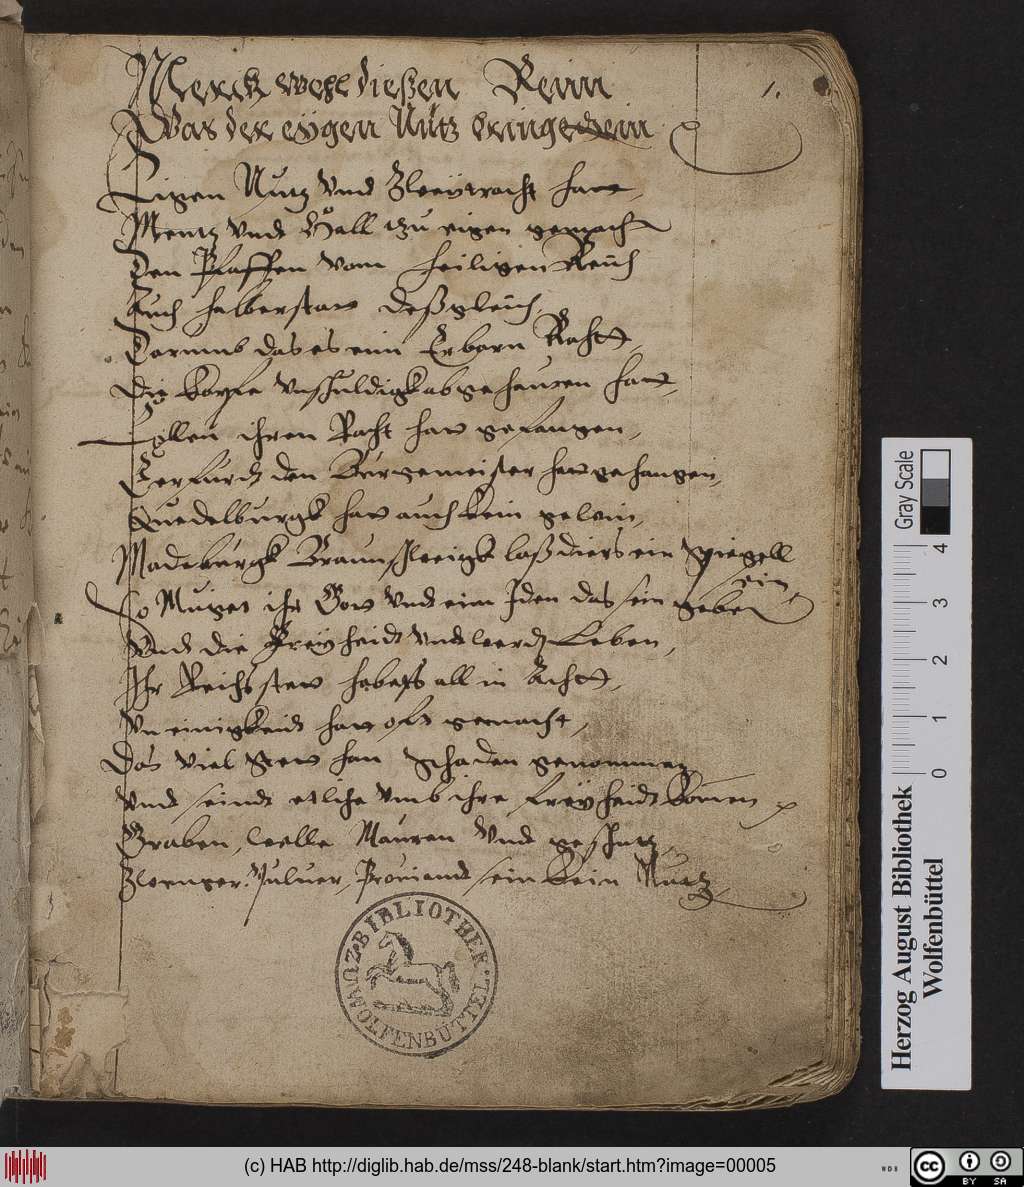 Merck wohl dießen Reim
Was der eÿgen Nutz bringet ein
1.
Eigen Nutz vnd Zweÿtracht hatt,
Mentz vnd Hall tzu eigen gemacht
Den Pfaffen vom heiligen Reich
Auch halberstatt deßgleich,
Darumb das es eim Erbarn Raht,
Die Köpfe vnschuldigk abgehauwen hatt,
Cöllen ihren Raht hatt gefangen,
Erfurdt den Burgemeister hatt gehangen,
Quedelburgk hatt auch kein gewin,
Madeburgk Braunschweigk laß diers ein spiegell
sein,
So Muget ihr Gott vnd eim Jden das sein geben
Vnd die Freÿheidt vnd werdt Leben,
Ihr Reichs stett habets all in Acht,
Vneinigkeidt hatt oft gemacht,
Das viel Stett han schaden genommen
Vnd seindt etliche vmb ihre freÿheidt komen
Graben, welle Mauren Vnd geschutz,
Zwenger, Puluer, Prouiandt sein kein Nutz,
BIBLIOTHEK ZU WOLFENBÜTTEL
Herzog August Bibliothek
Wolfenbüttel
Gray Scale
0 1 2 3 4
(c) HAB http://diglib.hab.de/mss/248-blank/start.htm?image=00005
WDB
cc BY SA